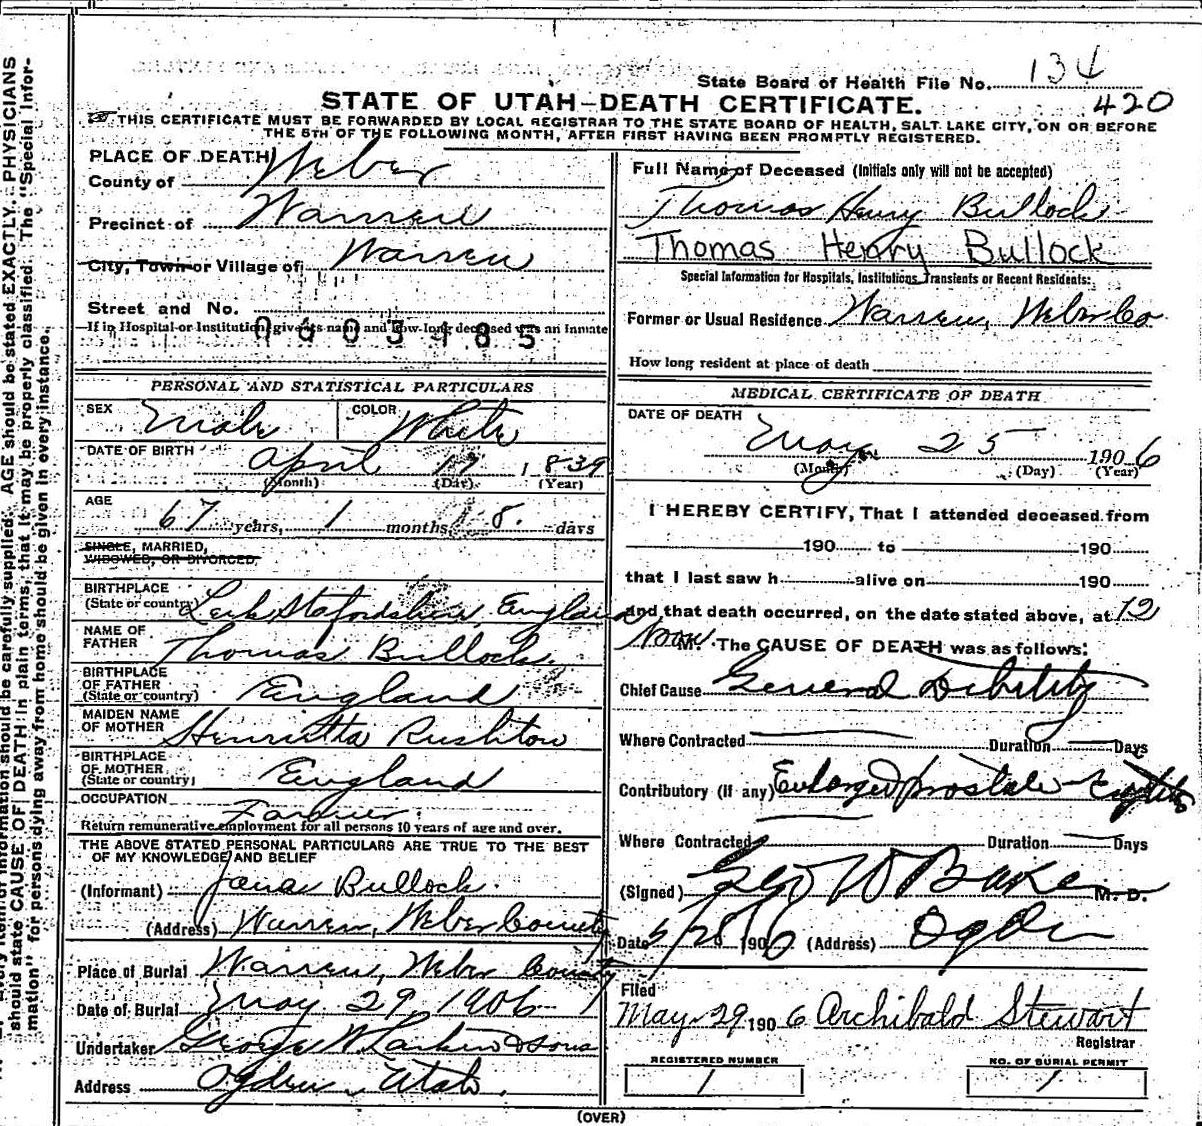 State Board of Health File No. 134
420
STATE OF UTAH—DEATH CERTIFICATE.
THIS CERTIFICATE MUST BE FORWARDED BY LOCAL REGISTRAR TO THE STATE BOARD OF HEALTH, SALT LAKE CITY, ON OR BEFORE
THE 5TH OF THE FOLLOWING MONTH, AFTER FIRST HAVING BEEN PROMPTLY REGISTERED.
PLACE OF DEATH
County of Weber
Precinct of Warren
City, Town or Village of Warren
Street and No.
If in Hospital or Institution, give its name and how long deceased was an inmate
0603185
PERSONAL AND STATISTICAL PARTICULARS
SEX Male COLOR White
DATE OF BIRTH April 17 1839
(Month) (Day) (Year)
AGE 67 years, 1 months 8 days
SINGLE, MARRIED,
WIDOWED, OR DIVORCED,
BIRTHPLACE
(State or country) Leek Stafordshire, England
NAME OF
FATHER Thomas Bullock.
BIRTHPLACE
OF FATHER
(State or country) England
MAIDEN NAME
OF MOTHER Henrietta Rushton
BIRTHPLACE
OF MOTHER
(State or country) England
OCCUPATION Farmer.
Return remunerative employment for all persons 10 years of age and over.
THE ABOVE STATED PERSONAL PARTICULARS ARE TRUE TO THE BEST
OF MY KNOWLEDGE AND BELIEF
(Informant) Jana Bullock.
(Address) Warren, Weber County
Place of Burial Warren, Weber County
Date of Burial May 29, 1906
Undertaker George W. Larkin & Sons
Address Ogden, Utah.
Full Name of Deceased (Initials only will not be accepted)
Thomas Henry Bullock
Thomas Henry Bullock
Special Information for Hospitals, Institutions, Transients or Recent Residents:
Former or Usual Residence Warren, Weber Co
How long resident at place of death
MEDICAL CERTIFICATE OF DEATH
DATE OF DEATH
May 25 1906
(Month) (Day) (Year)
I HEREBY CERTIFY, That I attended deceased from
190 to 190
that I last saw h alive on 190
and that death occurred, on the date stated above, at 12
Noon M. The CAUSE OF DEATH was as follows:
Chief Cause General Debility
Where Contracted Duration Days
Contributory (if any) Enlarged prostate - Cystitis
Where Contracted Duration Days
(Signed) Geo W Baker M. D.
Date 5/28 1906 (Address) Ogden
Filed
May 29 1906 Archibald Stewart
Registrar
REGISTERED NUMBER
1
NO. OF BURIAL PERMIT
1
(OVER)
information should be carefully supplied. AGE should be stated EXACTLY. PHYSICIANS
should state CAUSE OF DEATH in plain terms, that it may be properly classified. The "Special Infor-
mation" for persons dying away from home should be given in every instance.